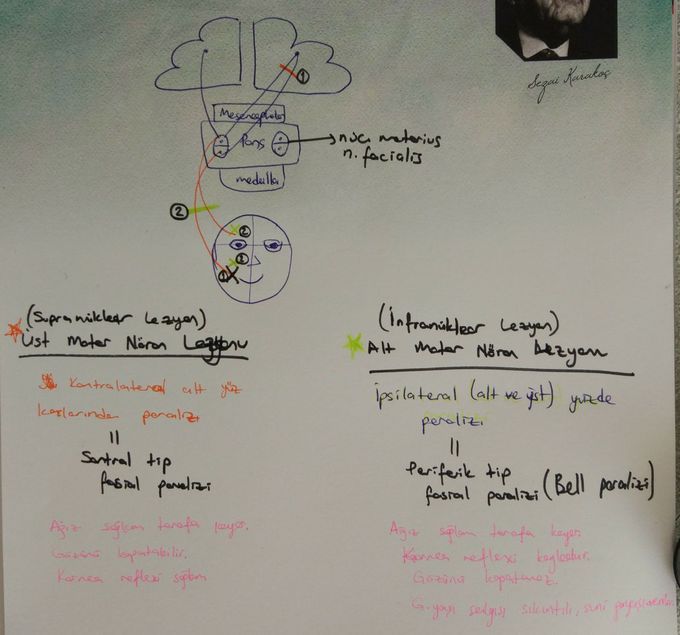 Sezai Karakoç
①
Mesencephalon
Pons
nuc. motorius
n. facialis
medulla
②
②
②
①
(Supranükleer Lezyon)
Üst Motor Nöron Lezyonu
Kontralateral alt yüz
kaslarında paralizi
=
Santral tip
fasial paralizi
Ağız sağlam tarafa kayar.
Gözünü kapatabilir.
Kornea refleksi sağlam
(İnfranükleer Lezyon)
Alt Motor Nöron Lezyonu
İpsilateral (alt ve üst) yüzde
paralizi
=
Periferik tip
fasial paralizi (Bell paralizi)
Ağız sağlam tarafa kayar.
Kornea reflexi kayıptır.
Gözünü kapatamaz.
G. yaşı salgısı sıkıntılı, suni